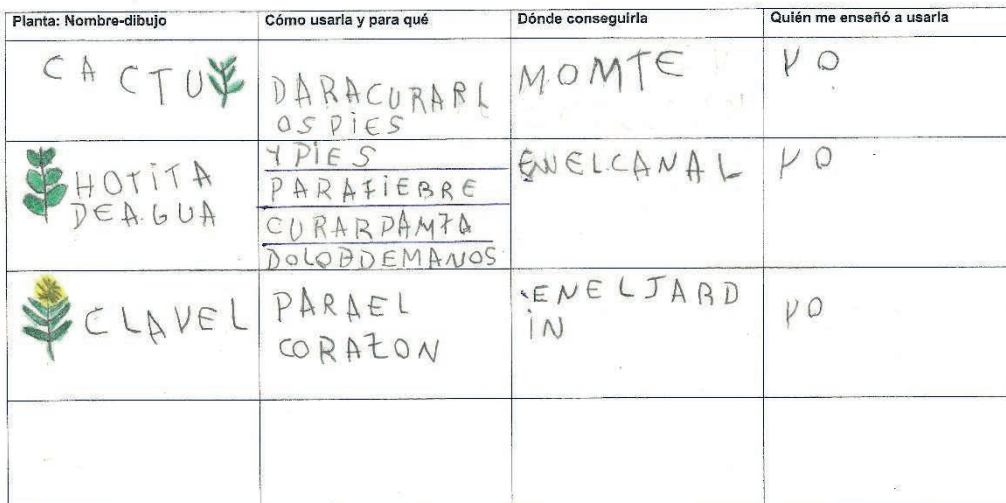 Planta: Nombre-dibujo
Cómo usarla y para qué
Dónde conseguirla
Quién me enseñó a usarla
CACTU
DARACURARL
OS PIES
MOMTE
YO
HOTITA
DEAGUA
Y PIES
PARAFIEBRE
CURARPAMZA
DOLORDEMANOS
ENELCANAL
YO
CLAVEL
PARAEL
CORAZON
ENELJARD
IN
YO